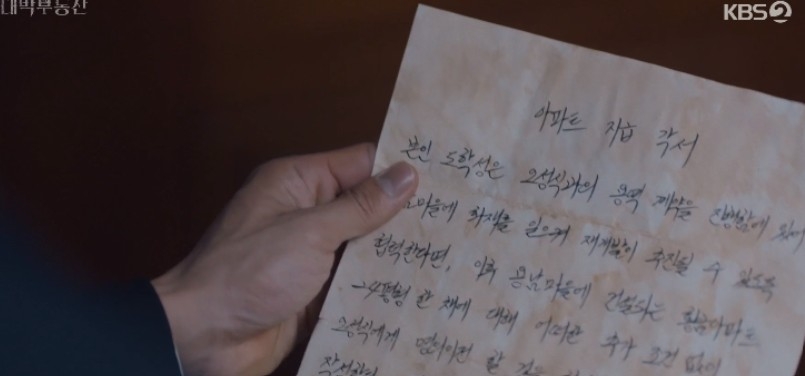 대박부동산
KBS2
아파트 지급 각서
본인 도학성은 오성식과의 용역 계약을 진행함에 있어
마을에 화재를 일으켜 재개발이 추진될 수 있도록
협력한다면, 이후 용남마을에 건설되는 황금아파트
24평형 한 채에 대해 어떠한 추가 조건 없이
오성식에게 명의이전 할 것을
작성하